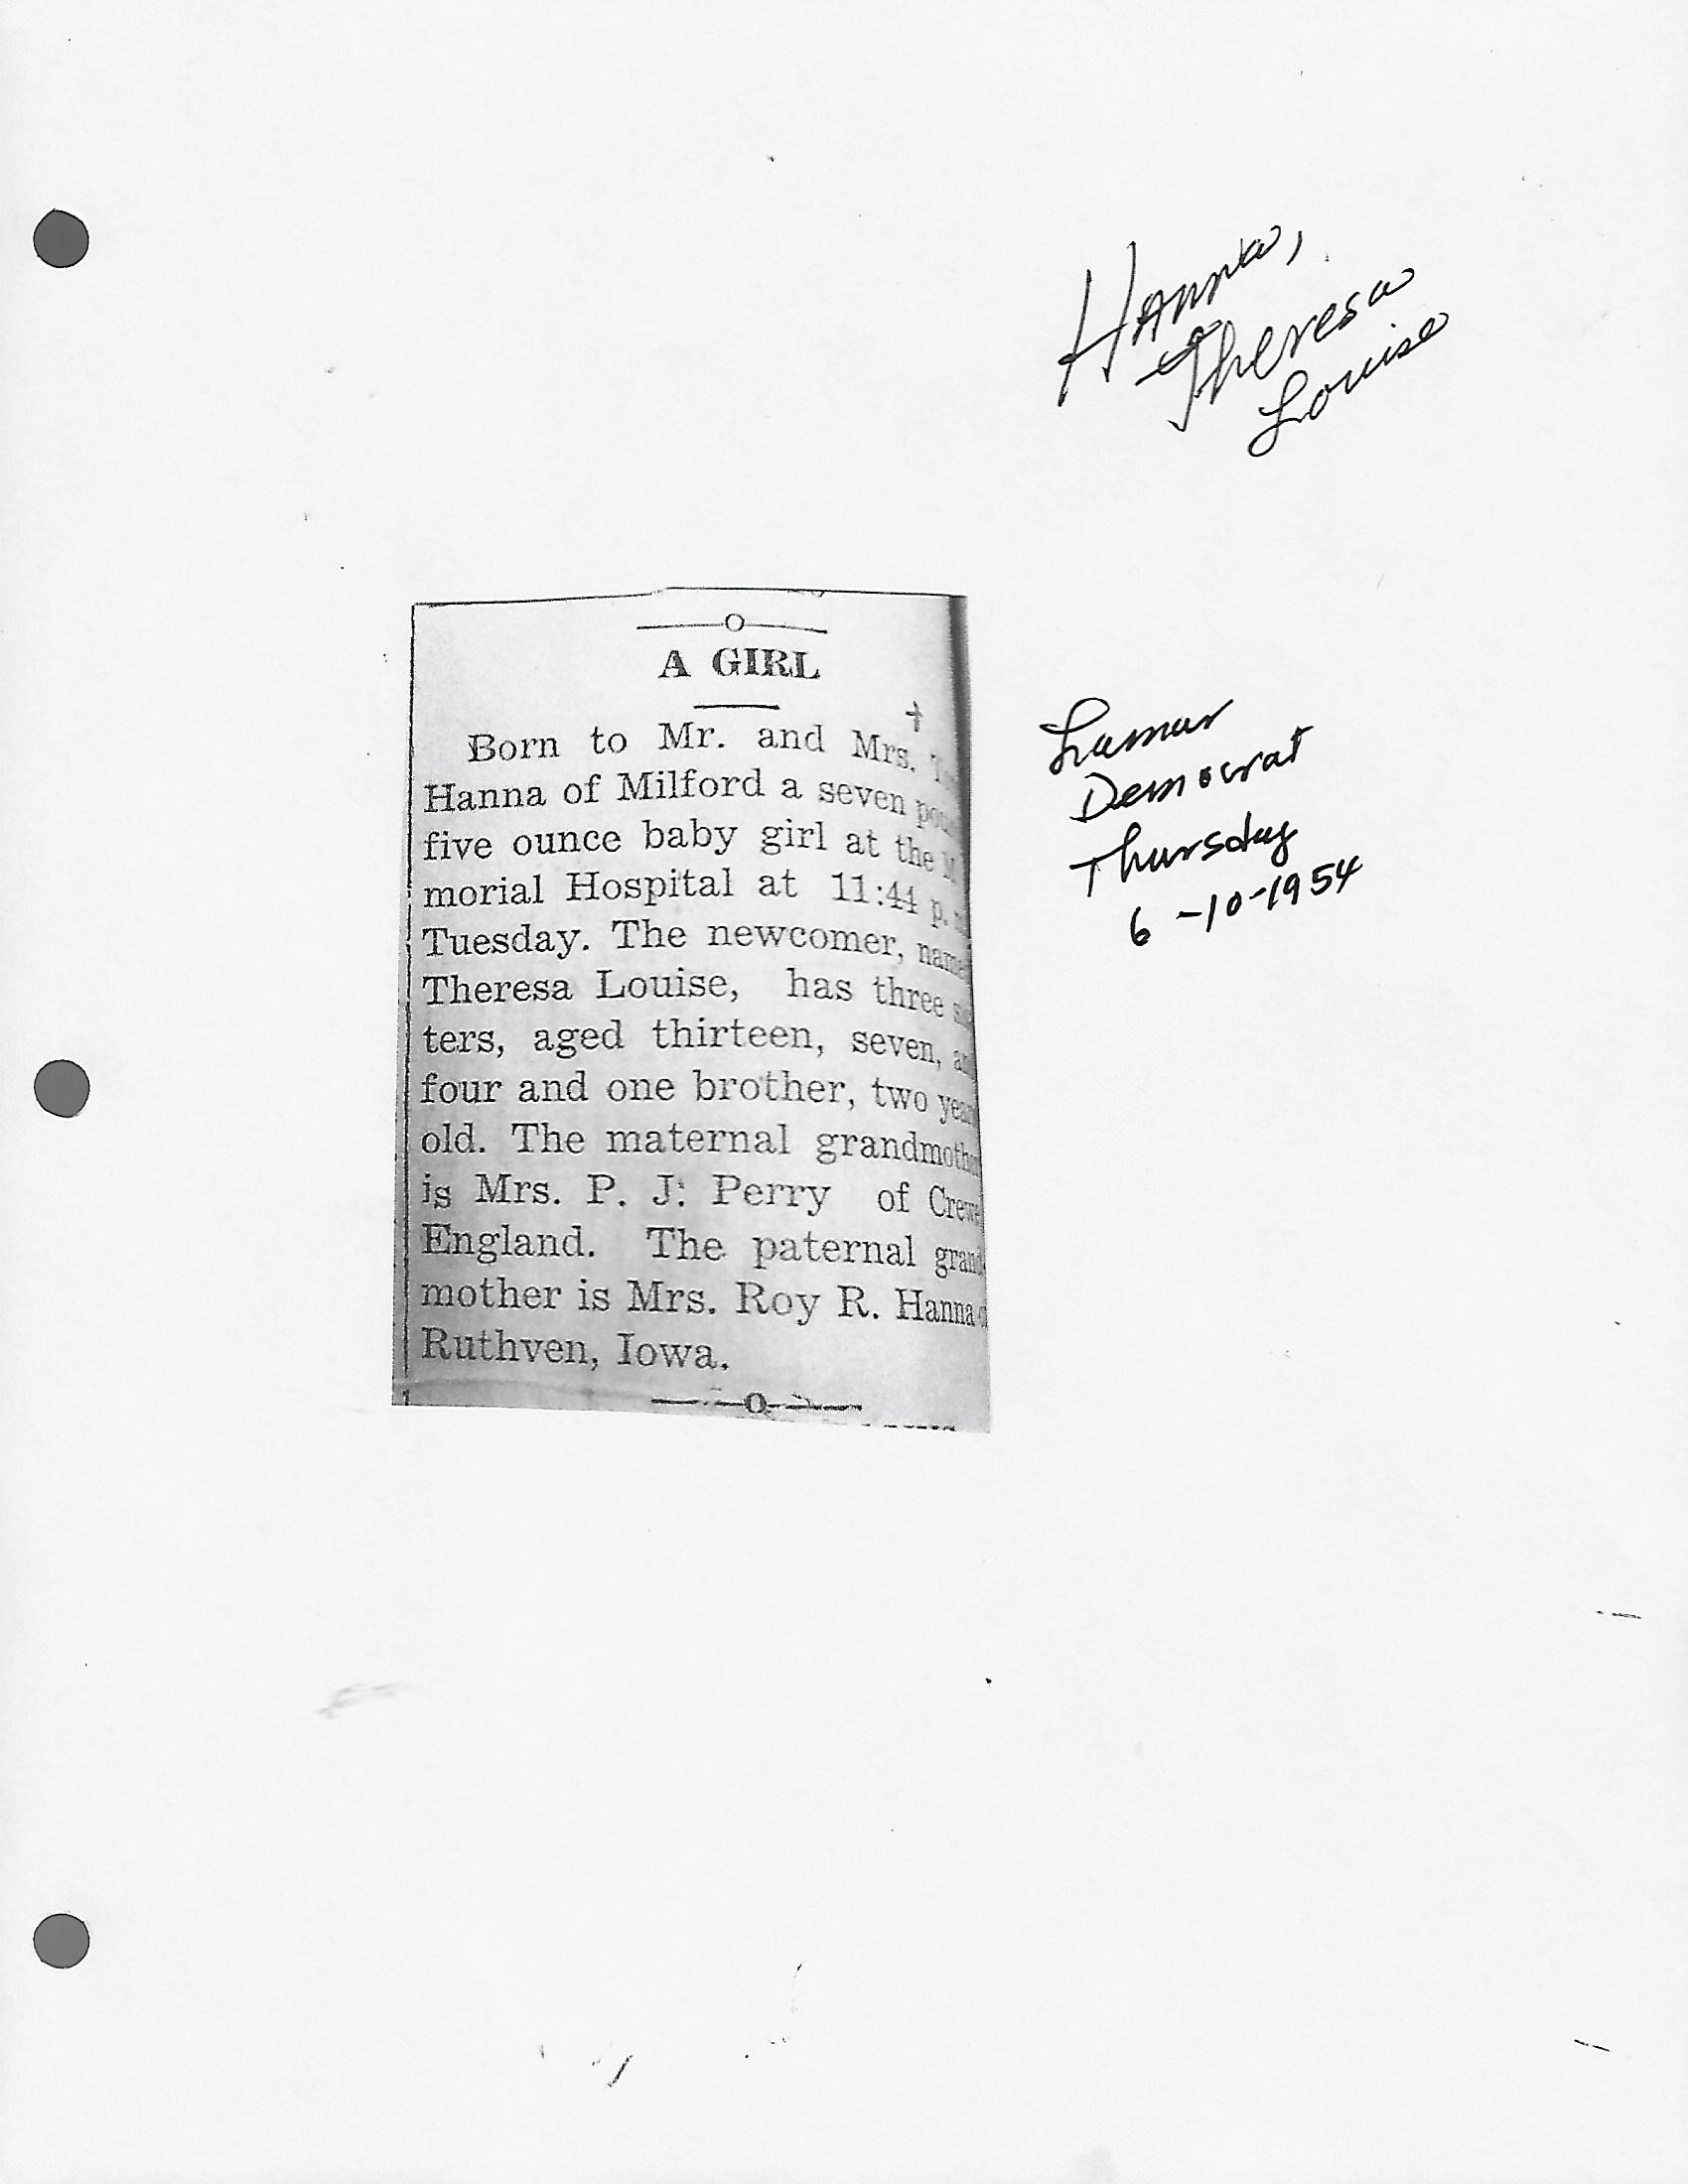 Hanna,
Theresa
Louise
A GIRL
Born to Mr. and Mrs.
Hanna of Milford a seven
five ounce baby girl at the
morial Hospital at 11:44 p.
Tuesday. The newcomer,
Theresa Louise, has three
ters, aged thirteen, seven,
four and one brother, two
old. The maternal grandmother
is Mrs. P. J. Perry of Crewe
England. The paternal grand
mother is Mrs. Roy R. Hanna
Ruthven, Iowa.
Lamar
Democrat
Thursday
6-10-1954